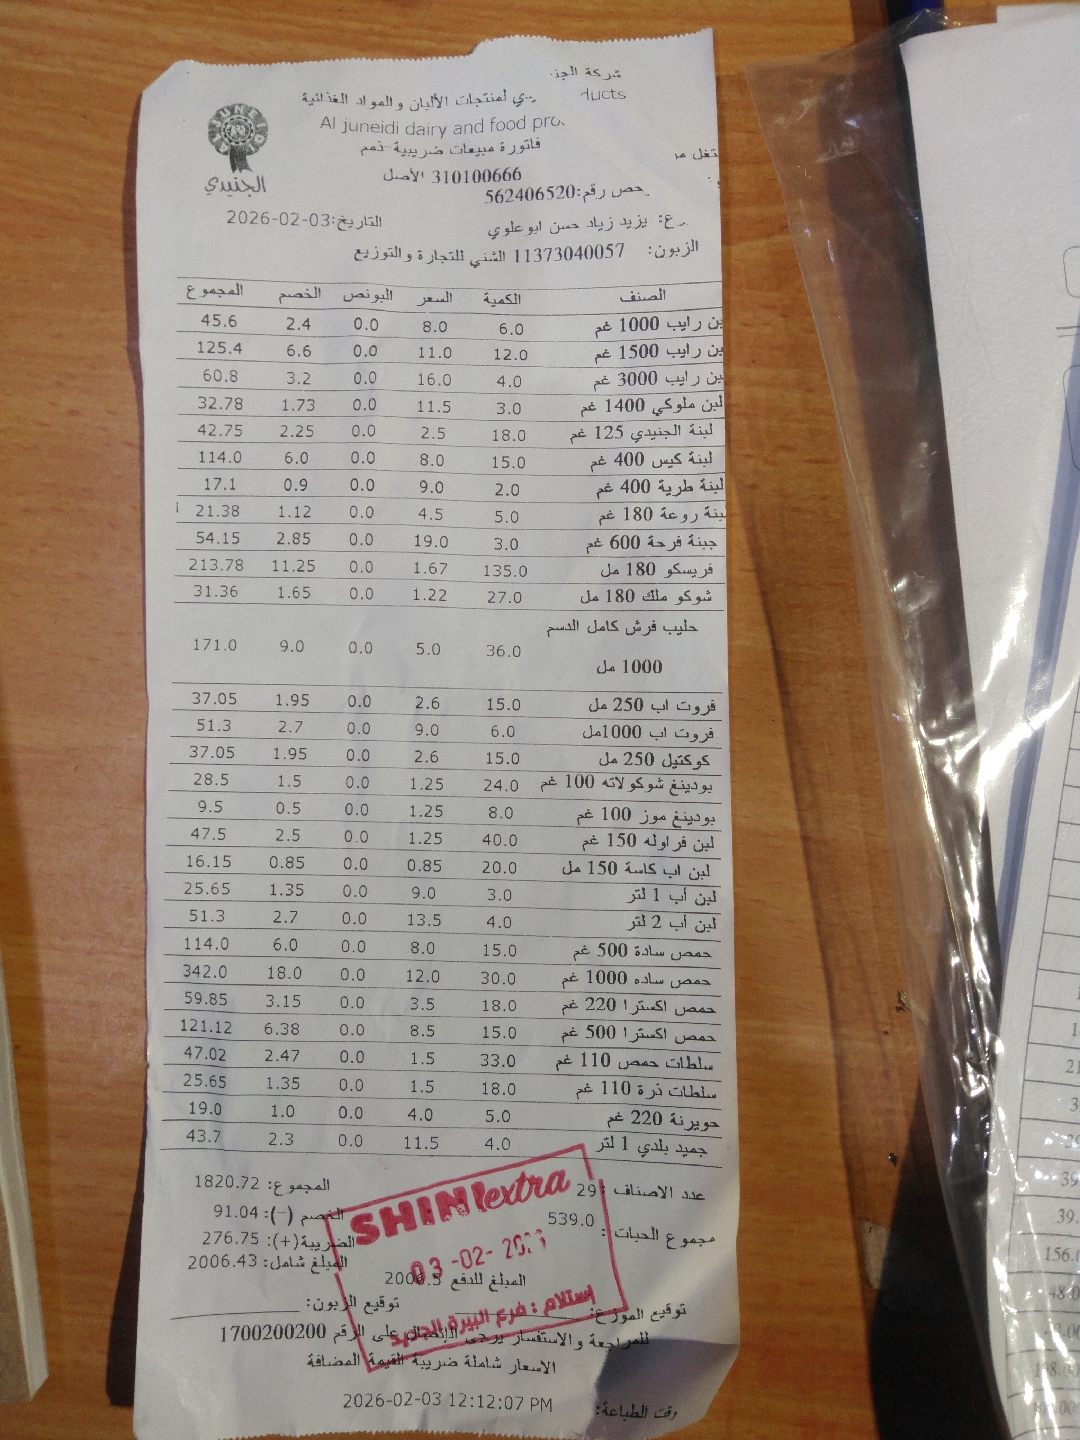 شركة الجنيدي لمنتجات الألبان والمواد الغذائية
Al juneidi dairy and food products
فاتورة مبيعات ضريبية-ذمم
310100666 الأصل
562406520
التاريخ:2026-02-03
يزيد زياد حسن ابوعلوي
الزبون: 11373040057 الشني للتجارة والتوزيع
الجنيدي
الصنف الكمية السعر البونص الخصم المجموع
رايب 1000 غم 6.0 8.0 0.0 2.4 45.6
رايب 1500 غم 12.0 11.0 0.0 6.6 125.4
رايب 3000 غم 4.0 16.0 0.0 3.2 60.8
لبن ملوكي 1400 غم 3.0 11.5 0.0 1.73 32.78
لبنة الجنيدي 125 غم 18.0 2.5 0.0 2.25 42.75
لبنة كيس 400 غم 15.0 8.0 0.0 6.0 114.0
لبنة طرية 400 غم 2.0 9.0 0.0 0.9 17.1
لبنة روعة 180 غم 5.0 4.5 0.0 1.12 21.38
جبنة فرحة 600 غم 3.0 19.0 0.0 2.85 54.15
فريسكو 180 مل 135.0 1.67 0.0 11.25 213.78
شوكو ملك 180 مل 27.0 1.22 0.0 1.65 31.36
حليب فرش كامل الدسم
1000 مل 36.0 5.0 0.0 9.0 171.0
فروت اب 250 مل 15.0 2.6 0.0 1.95 37.05
فروت اب 1000مل 6.0 9.0 0.0 2.7 51.3
كوكتيل 250 مل 15.0 2.6 0.0 1.95 37.05
بودينغ شوكولاته 100 غم 24.0 1.25 0.0 1.5 28.5
بودينغ موز 100 غم 8.0 1.25 0.0 0.5 9.5
لبن فراوله 150 غم 40.0 1.25 0.0 2.5 47.5
لبن اب كاسة 150 مل 20.0 0.85 0.0 0.85 16.15
لبن أب 1 لتر 3.0 9.0 0.0 1.35 25.65
لبن أب 2 لتر 4.0 13.5 0.0 2.7 51.3
حمص سادة 500 غم 15.0 8.0 0.0 6.0 114.0
حمص ساده 1000 غم 30.0 12.0 0.0 18.0 342.0
حمص اكسترا 220 غم 18.0 3.5 0.0 3.15 59.85
حمص اكسترا 500 غم 15.0 8.5 0.0 6.38 121.12
سلطات حمص 110 غم 33.0 1.5 0.0 2.47 47.02
سلطات ذرة 110 غم 18.0 1.5 0.0 1.35 25.65
حويرنة 220 غم 5.0 4.0 0.0 1.0 19.0
جميد بلدي 1 لتر 4.0 11.5 0.0 2.3 43.7
عدد الاصناف : 29 المجموع: 1820.72
مجموع الحبات : 539.0 الخصم (-): 91.04
الضريبة(+): 276.75
المبلغ شامل: 2006.43
المبلغ للدفع 2006.5
توقيع الموزع: توقيع الزبون:
للمراجعة والاستفسار يرجى الإتصال على الرقم 1700200200
الاسعار شاملة ضريبة القيمة المضافة
وقت الطباعة: 2026-02-03 12:12:07 PM
SHINI extra
03-02-
استلام : فرع البيرة الجديد